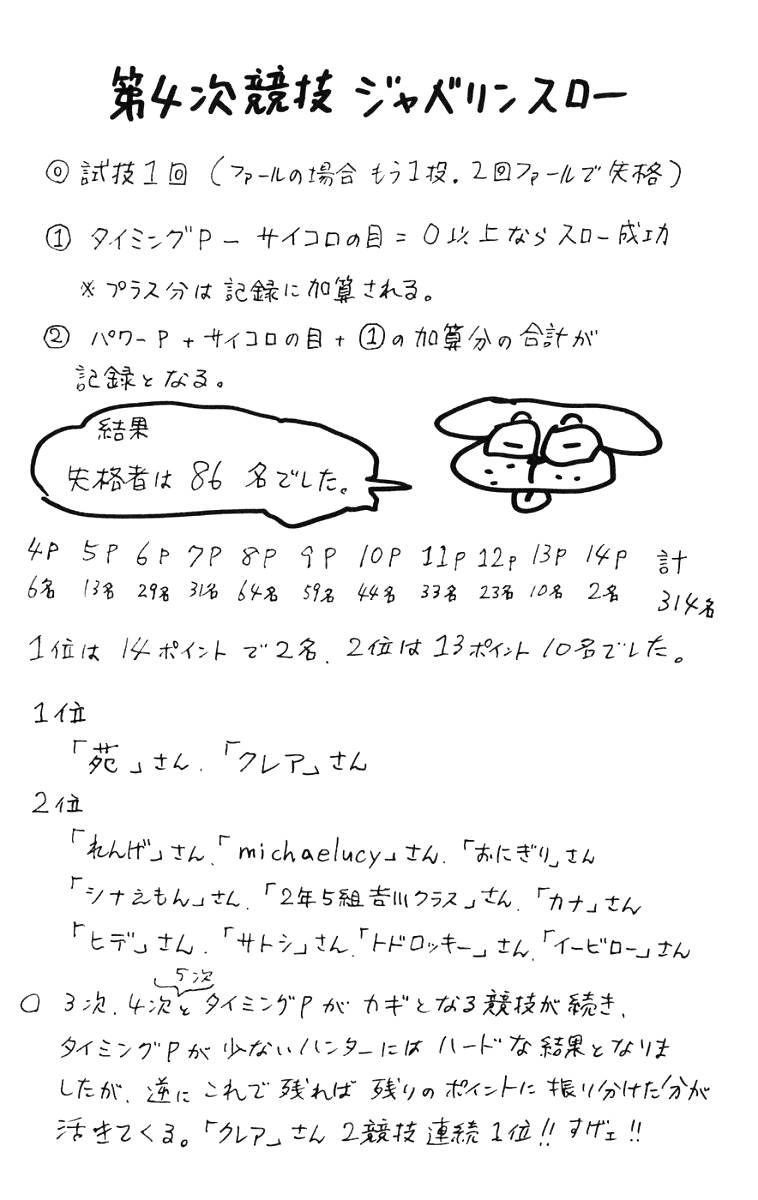 第4次競技 ジャベリンスロー
◎ 試技1回 (ファールの場合 もう1投. 2回ファールで失格)
① タイミングP － サイコロの目 = 0以上なら スロー成功
※ プラス分は 記録に加算される。
② パワーP + サイコロの目 + ①の加算分の合計が
記録となる。
結果
失格者は 86 名でした。
4P 5P 6P 7P 8P 9P 10P 11P 12P 13P 14P 計
6名 13名 29名 31名 64名 59名 44名 33名 23名 10名 2名 314名
1位は 14ポイントで2名. 2位は13ポイント10名でした。
1位
「苑」さん.「クレア」さん
2位
「れんげ」さん.「michaelucy」さん.「おにぎり」さん
「シナえもん」さん.「2年5組吉川クラス」さん.「カナ」さん
「ヒデ」さん.「サトシ」さん.「トドロッキー」さん.「イービロー」さん
5次
○ 3次. 4次と タイミングPが カギとなる競技が続き.
タイミングPが 少ないハンターには ハードな結果となりま
したが. 逆に これで残れば 残りのポイントに 振り分けた分が
活きてくる。「クレア」さん 2競技連続1位!! すげェ!!